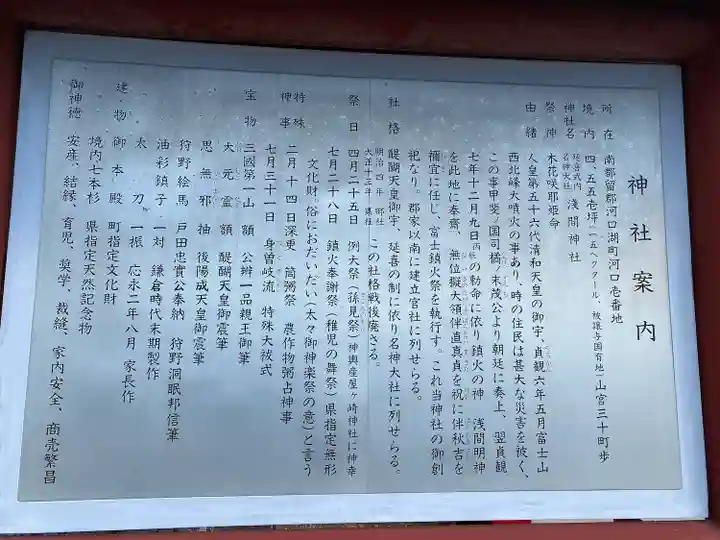 神社案内
所在 南都留郡河口湖町河口壱番地
境内 四、五五壱坪(一五ヘクタール、被譲与国有地)山宮三十町歩
神社名 延喜式内名神大社 浅間神社
祭神 木花咲耶姫命
由緒 人皇第五十六代清和天皇の御宇、貞観六年五月富士山
西北峰大噴火の事あり、時の住民は甚大な災害を被く、
この事甲斐ノ国司橘ノ末茂公より朝廷に奏上、翌貞観
七年十二月九日丙辰の勅命に依り鎮火の神 浅間明神
を此地に奉齋、無位擬大領伴直真貞を祝に伴秋吉を
禰宜に任し、富士鎮火祭を執行す。これ当神社の御創
祀なり。郡家以南に建立官社に列せらる。
醍醐天皇御宇、延喜の制に依り名神大社に列せらる。
社格 明治四年 郷社 大正十三年 県社 この社格戦後廃さる。
祭日 四月二十五日 例大祭(孫見祭)神輿産屋ヶ崎神社に神幸
七月二十八日 鎮火奉謝祭(稚児の舞祭)県指定無形
文化財、俗におだいだい(太々御神楽祭の意)と言う
特殊神事 二月十四日深更 筒粥祭 農作物粥占神事
七月三十一日 身曽岐流 特殊大祓式
宝物 三國第一山 額 公辨一品親王御筆
大元霊 額 醍醐天皇御宸筆
思無邪 抽 後陽成天皇御宸筆
狩野絵馬 戸田忠實公奉納 狩野洞眠邦信筆
油彩鎮子 一対 鎌倉時代末期製作
太刀 一振 応永二年八月 家長作
建物 御本殿 町指定文化財
境内七本杉 県指定天然記念物
御神徳 安産、結縁、育児、奨学、裁縫、家内安全、商売繁昌